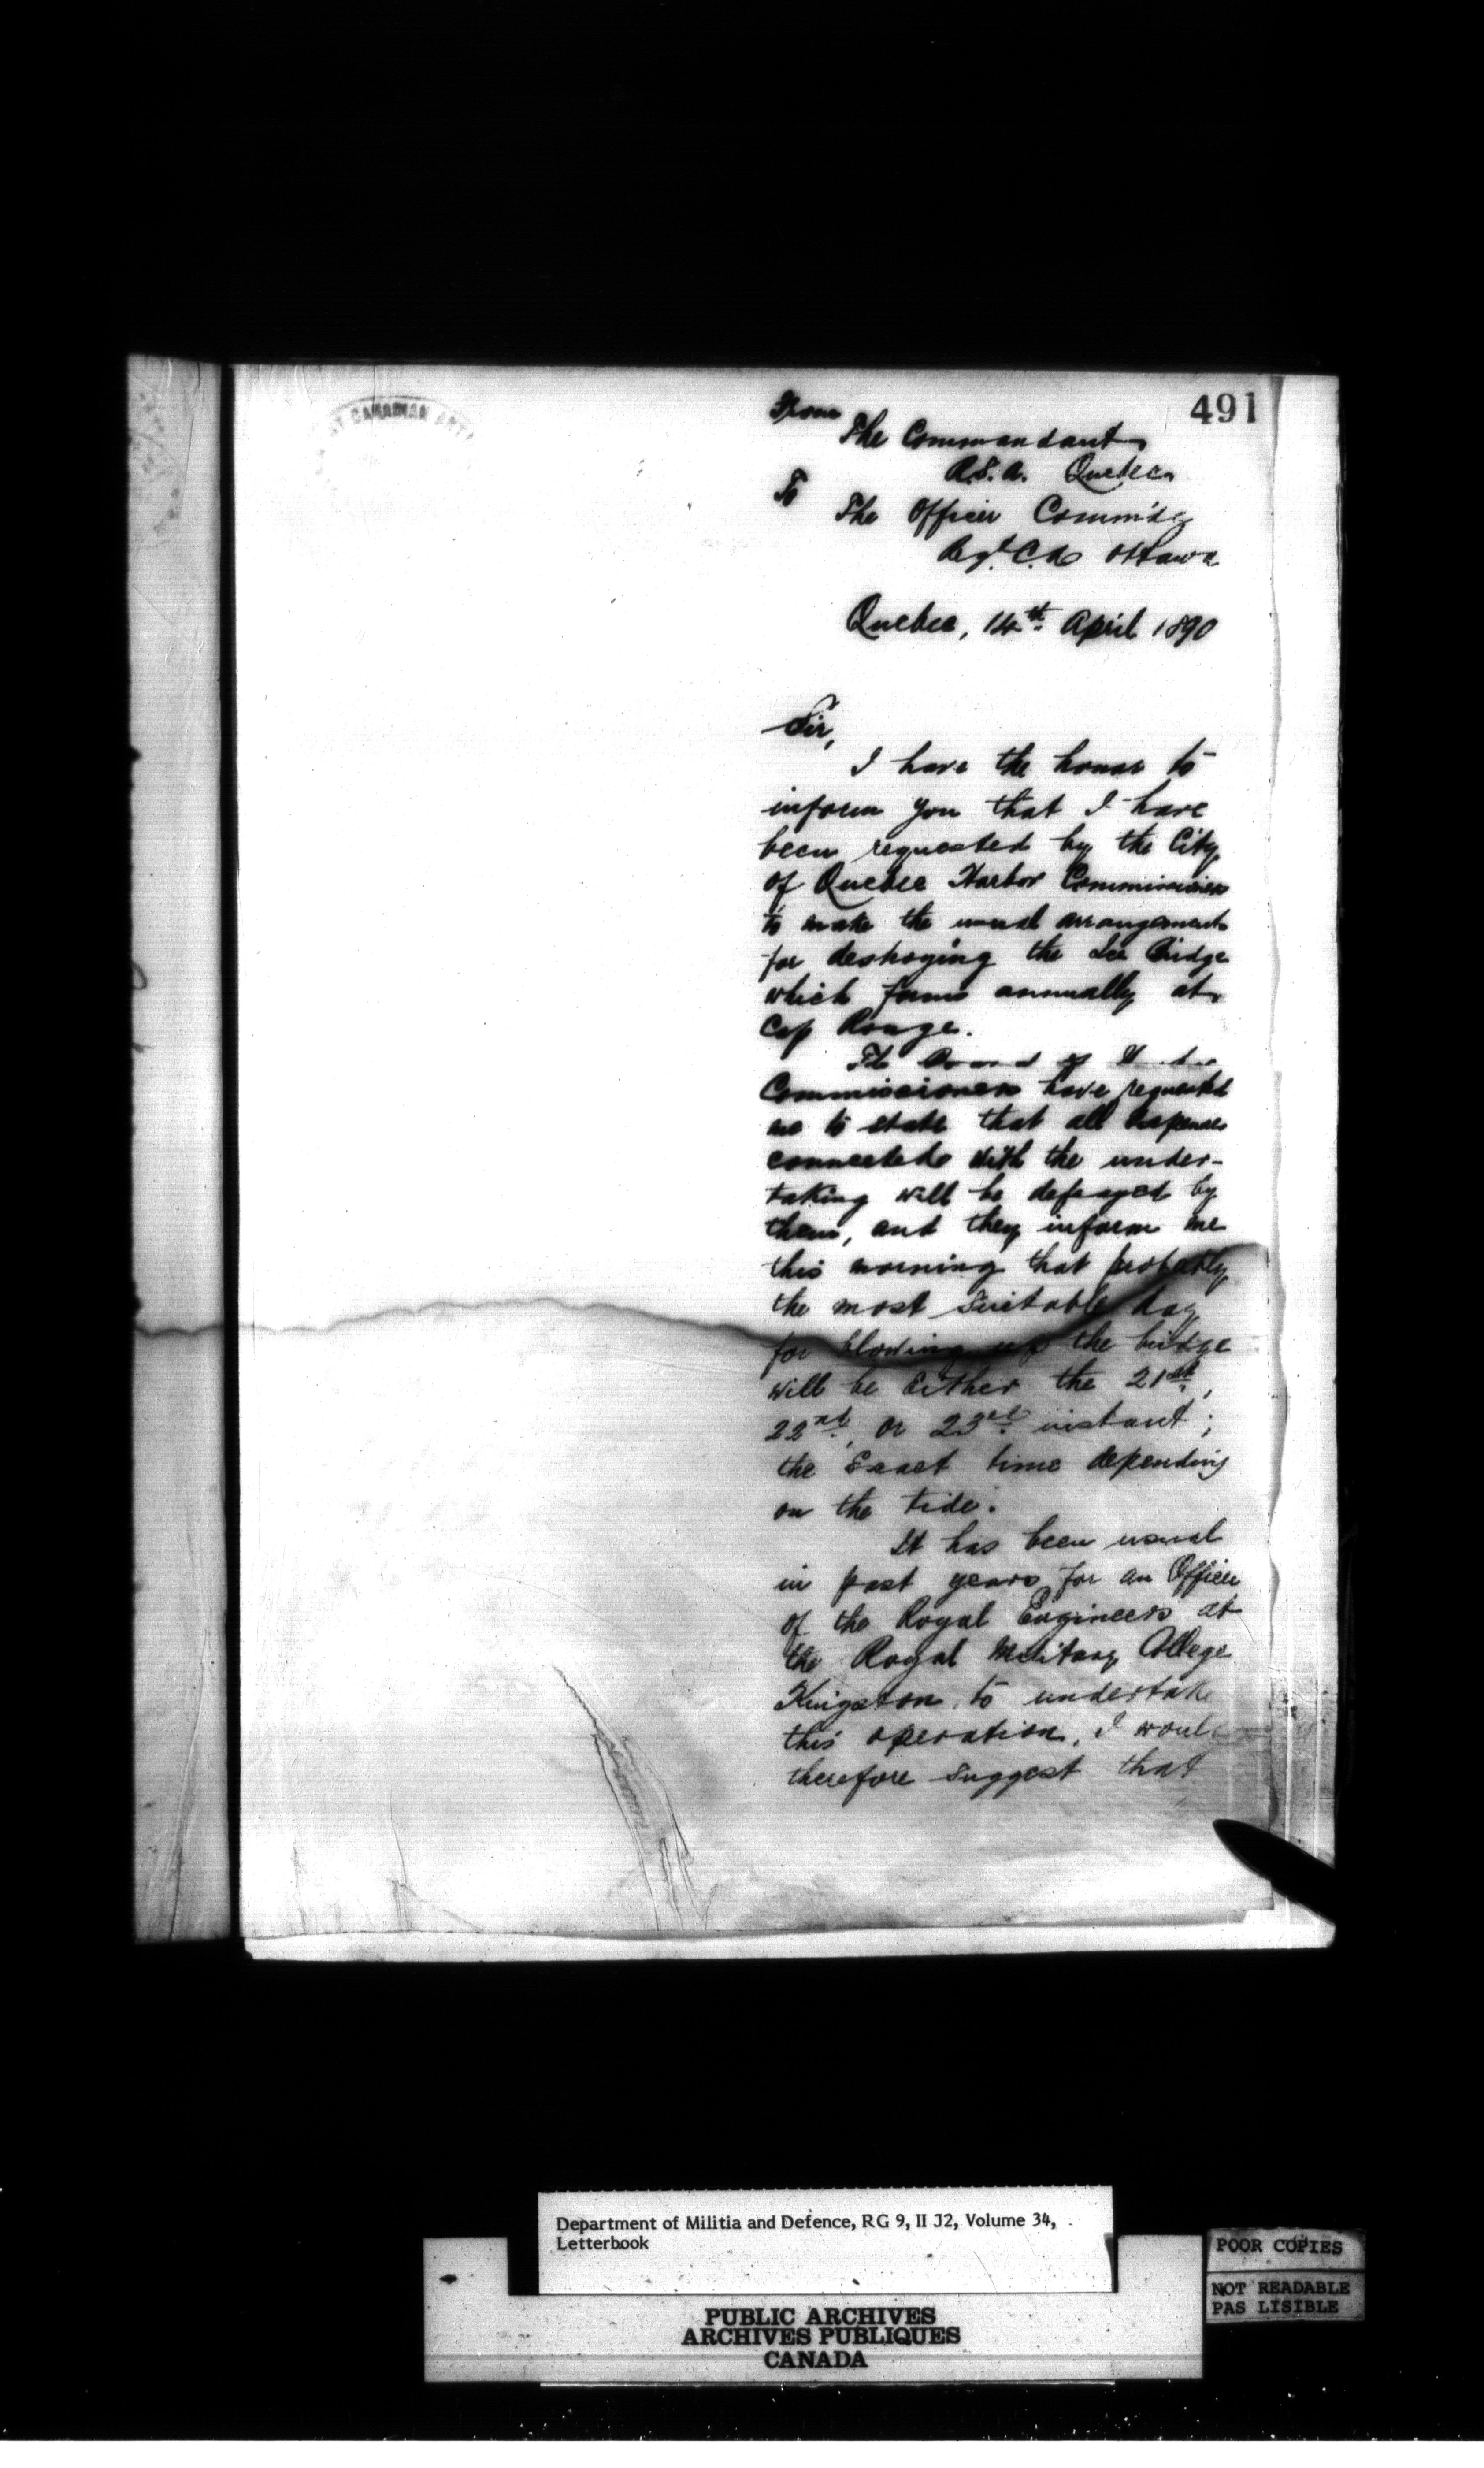 491
From
The Commandant
R.S.A. Quebec
To
The Officer Comm'dg
Regt. C.A. Ottawa
Quebec, 14th April 1890
Sir,
I have the honor to
inform you that I have
been requested by the City
of Quebec Harbor Commissioners
to make the usual arrangements
for destroying the Ice Bridge
which forms annually at
Cap Rouge.
The Board of
Commissioners have requested
me to state that all expenses
connected with the under-
taking will be defrayed by
them, and they inform me
this morning that probably
the most suitable day
for blowing up the bridge
will be Either the 21st,
22nd, or 23rd instant;
the Exact time depending
on the tide.
It has been usual
in past years for an Officer
of the Royal Engineers at
the Royal Military College
Kingston, to undertake
this operation, I would
therefore suggest that
CANADIAN ART
Department of Militia and Defence, RG 9, II J2, Volume 34,
Letterbook
POOR COPIES
NOT READABLE
PAS LISIBLE
PUBLIC ARCHIVES
ARCHIVES PUBLIQUES
CANADA